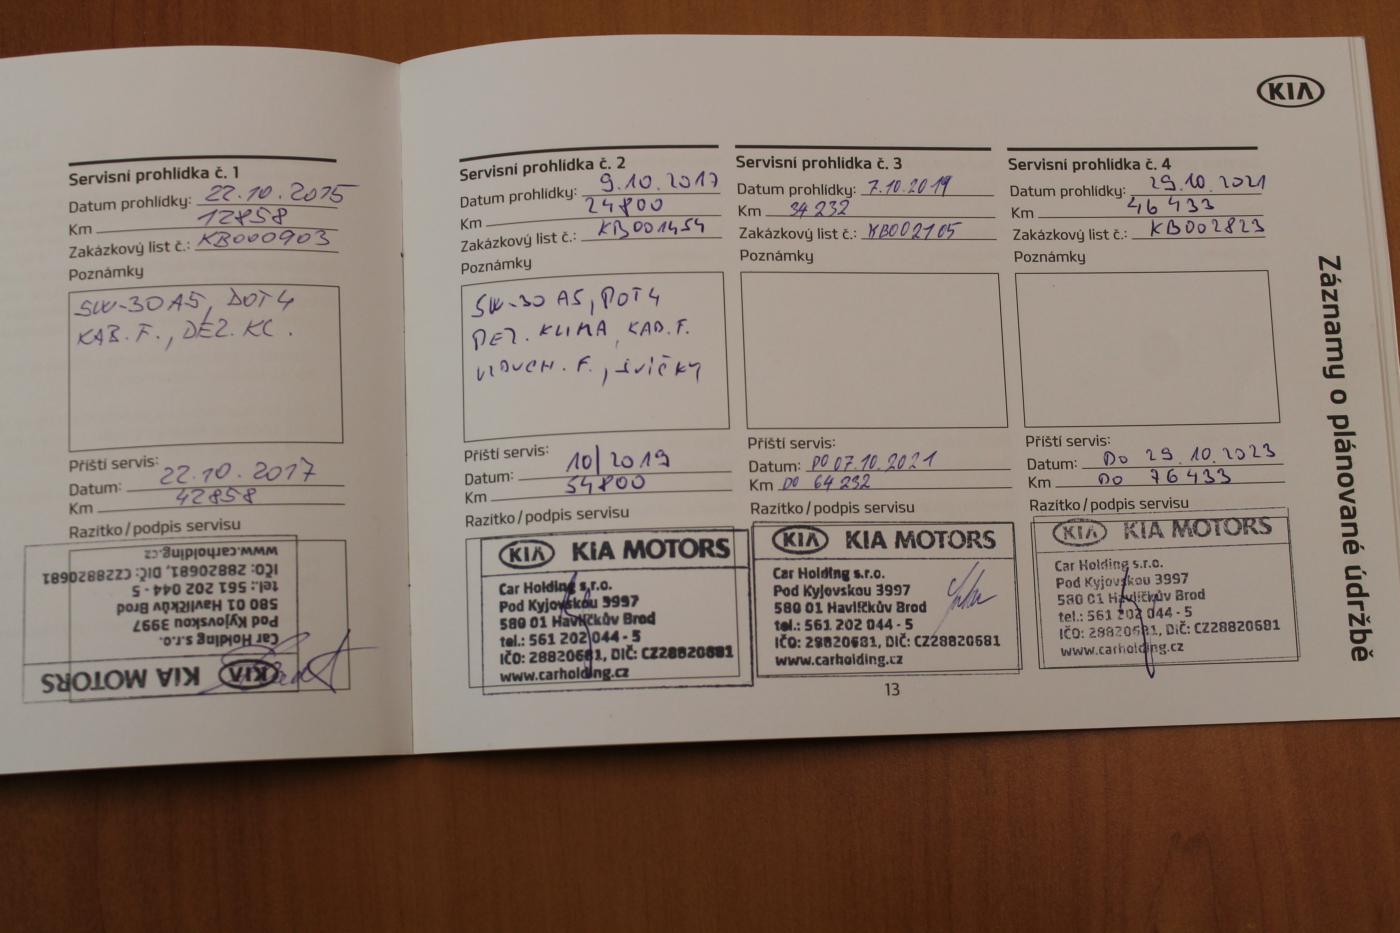 KIA
Servisní prohlídka č. 1
Datum prohlídky: 22.10.2015
Km 12858
Zakázkový list č.: KB000903
Poznámky
5W-30 A5, DOT4
KAB. F., DEZ. KC.
Příští servis:
Datum: 22.10.2017
Km 42858
Razítko/podpis servisu
KIA MOTORS
Car Holding s.r.o.
Pod Kyjovskou 3997
580 01 Havlíčkův Brod
tel.: 561 202 044 - 5
IČO: 28820681, DIČ: CZ28820681
www.carholding.cz
Servisní prohlídka č. 2
Datum prohlídky: 9.10.2017
Km 24800
Zakázkový list č.: KB001454
Poznámky
5W-30 A5, DOT4
DEZ. KLIMA, KAB. F.
VZDUCH. F., SVÍČKY
Příští servis:
Datum: 10/2019
Km 54800
Razítko/podpis servisu
KIA MOTORS
Car Holding s.r.o.
Pod Kyjovskou 3997
580 01 Havlíčkův Brod
tel.: 561 202 044 - 5
IČO: 28820681, DIČ: CZ28820681
www.carholding.cz
Servisní prohlídka č. 3
Datum prohlídky: 7.10.2019
Km 34232
Zakázkový list č.: KB002105
Poznámky
Příští servis:
Datum: DO 07.10.2021
Km DO 64232
Razítko/podpis servisu
KIA MOTORS
Car Holding s.r.o.
Pod Kyjovskou 3997
580 01 Havlíčkův Brod
tel.: 561 202 044 - 5
IČO: 28820681, DIČ: CZ28820681
www.carholding.cz
Servisní prohlídka č. 4
Datum prohlídky: 29.10.2021
Km 46433
Zakázkový list č.: KB002823
Poznámky
Příští servis:
Datum: DO 29.10.2023
Km DO 76433
Razítko/podpis servisu
KIA MOTORS
Car Holding s.r.o.
Pod Kyjovskou 3997
580 01 Havlíčkův Brod
tel.: 561 202 044 - 5
IČO: 28820681, DIČ: CZ28820681
www.carholding.cz
Záznamy o plánované údržbě
13